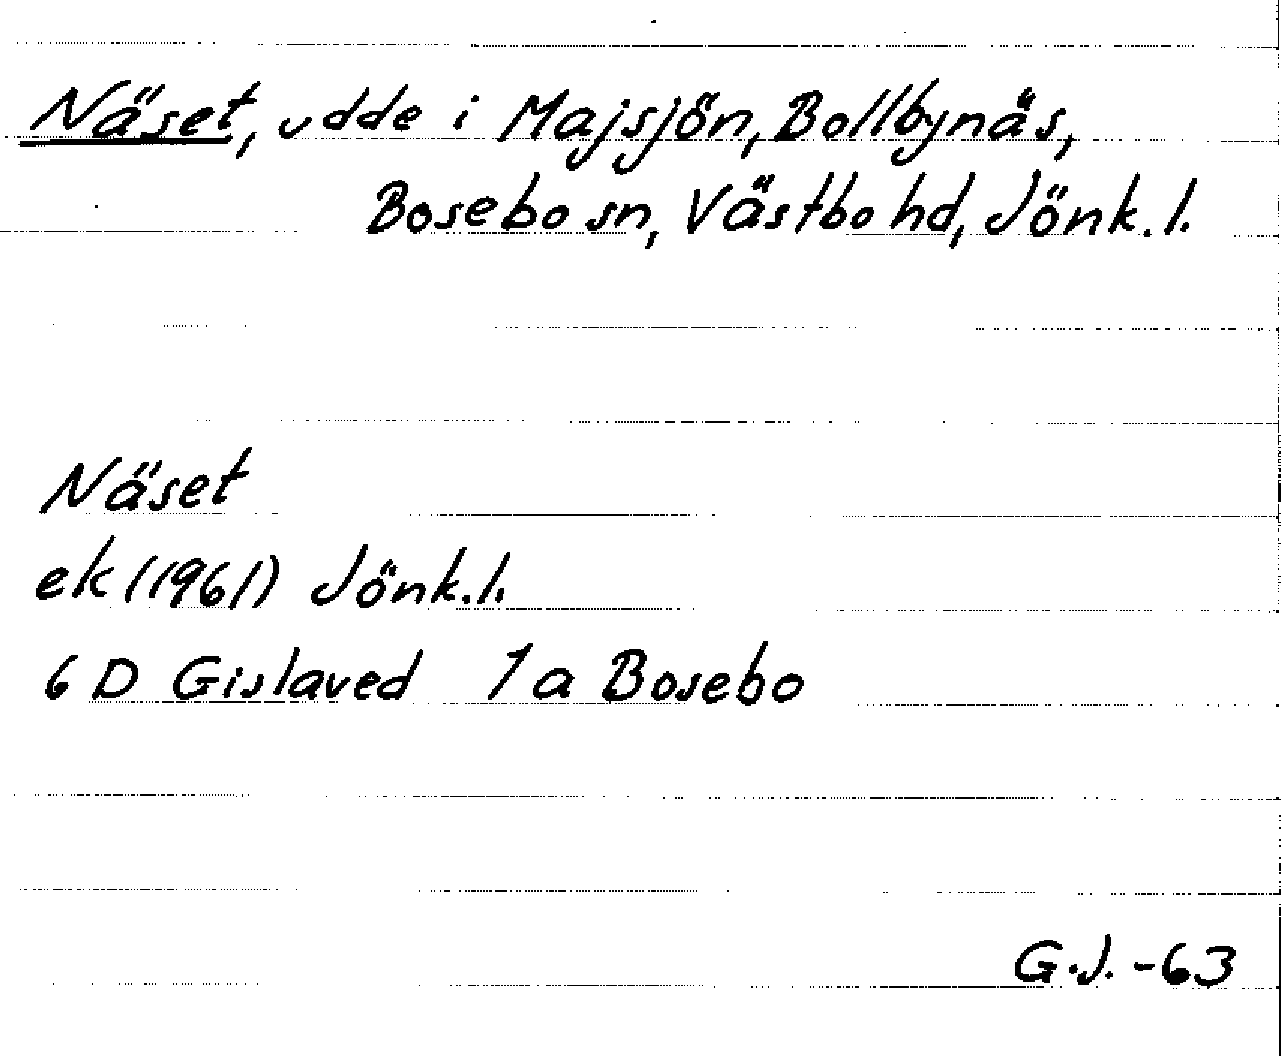 Näset, udde i Majsjön, Bollbynäs,
Bosebo sn, Västbo hd, Jönk. l.
Näset
ek (1961) Jönk. l.
6 D Gislaved 1 a Bosebo
G.J. -63